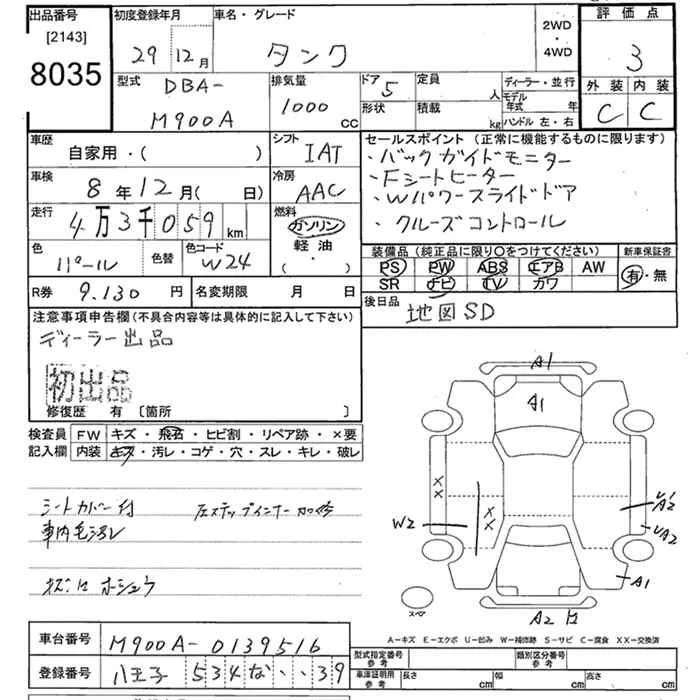 出品番号 [2143] 8035
初度登録年月 29年 12月
車名・グレード タンク
2WD ・ 4WD
評価点 3
外装 C 内装 C
型式 DBA- M900A
排気量 1000 cc
ドア 5 形状
定員 人 積載 kg
ディーラー・並行
モデル年式 年
ハンドル 左・右
車歴 自家用・( )
シフト IAT
車検 8年12月( 日)
冷房 AAC
走行 4万3千059 km
燃料 ガソリン 軽油 ( ・ )
色 パール 色替 色コード W24
R券 9.130 円 名変期限 月 日
セールスポイント (正常に機能するものに限ります)
・バックガイドモニター
・Fシートヒーター
・Wパワースライドドア
・クルーズコントロール
装備品 (純正品に限り○をつけてください) 新車保証書
PS PW ABS エアB AW 有・無
SR ナビ TV カワ
後日品 地図SD
注意事項申告欄 (不具合内容等は具体的に記入して下さい)
ディーラー出品
初出品
修復歴 有 [箇所 ]
検査員 FW キズ・飛石・ヒビ割・リペア跡・×要
記入欄 内装 キズ・汚レ・コゲ・穴・スレ・キレ・破レ
シートカバー付 左ステップインナー加修
車内毛汚レ
A1
A1
××
W2
××
A2
UA2
A1
スペア
A2
A-キズ E-エクボ U-凹み W-補修跡 S-サビ C-腐食 XX-交換済
車台番号 M900A-0139516
登録番号 八王子 534 な ・・39
型式指定番号 参考 類別区分番号 参考
車庫証明用 参考 長さ cm 幅 cm 高さ cm